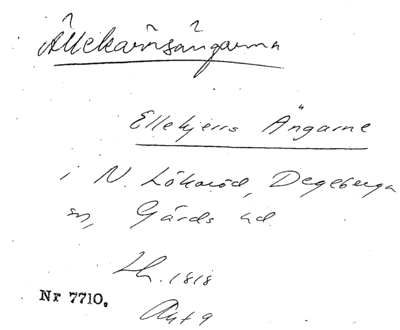 Ällekärrsängarna
Ellekjerrs Ängarne
i N. Lökaröd, Degeberga
sn, Gärds hd
Lh. 1818
Nr 7710.
Akt 9